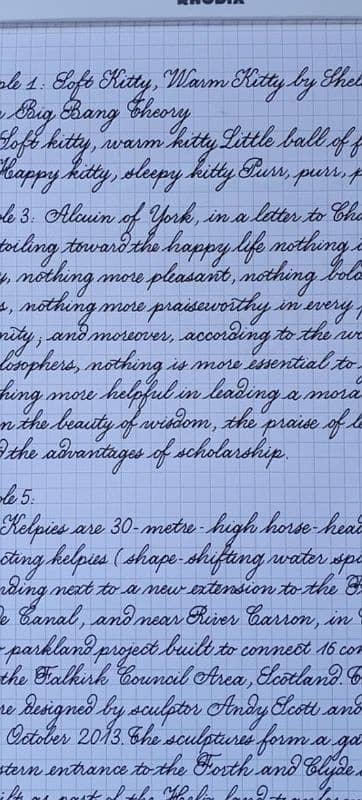 RHODIA
ple 1: Soft Kitty, Warm Kitty by Shel
Big Bang Theory
Soft kitty, warm kitty Little ball of f
Happy kitty, sleepy kitty Purr, purr, p
le 3: Alcuin of York, in a letter to Cha
toiling toward the happy life nothing
y, nothing more pleasant, nothing bold
s, nothing more praiseworthy in every
nity; and moreover, according to the wo
losophers, nothing is more essential to
hing more helpful in leading a mora
n the beauty of wisdom, the praise of le
d the advantages of scholarship.
le 5:
Kelpies are 30-metre-high horse-head
cting kelpies (shape-shifting water spi
nding next to a new extension to the F
e Canal, and near River Carron, in
parkland project built to connect 16 com
the Falkirk Council Area, Scotland. T
re designed by sculptor Andy Scott and
October 2013. The sculptures form a ga
stern entrance to the Forth and Clyde
ift as part of the Helix land tra